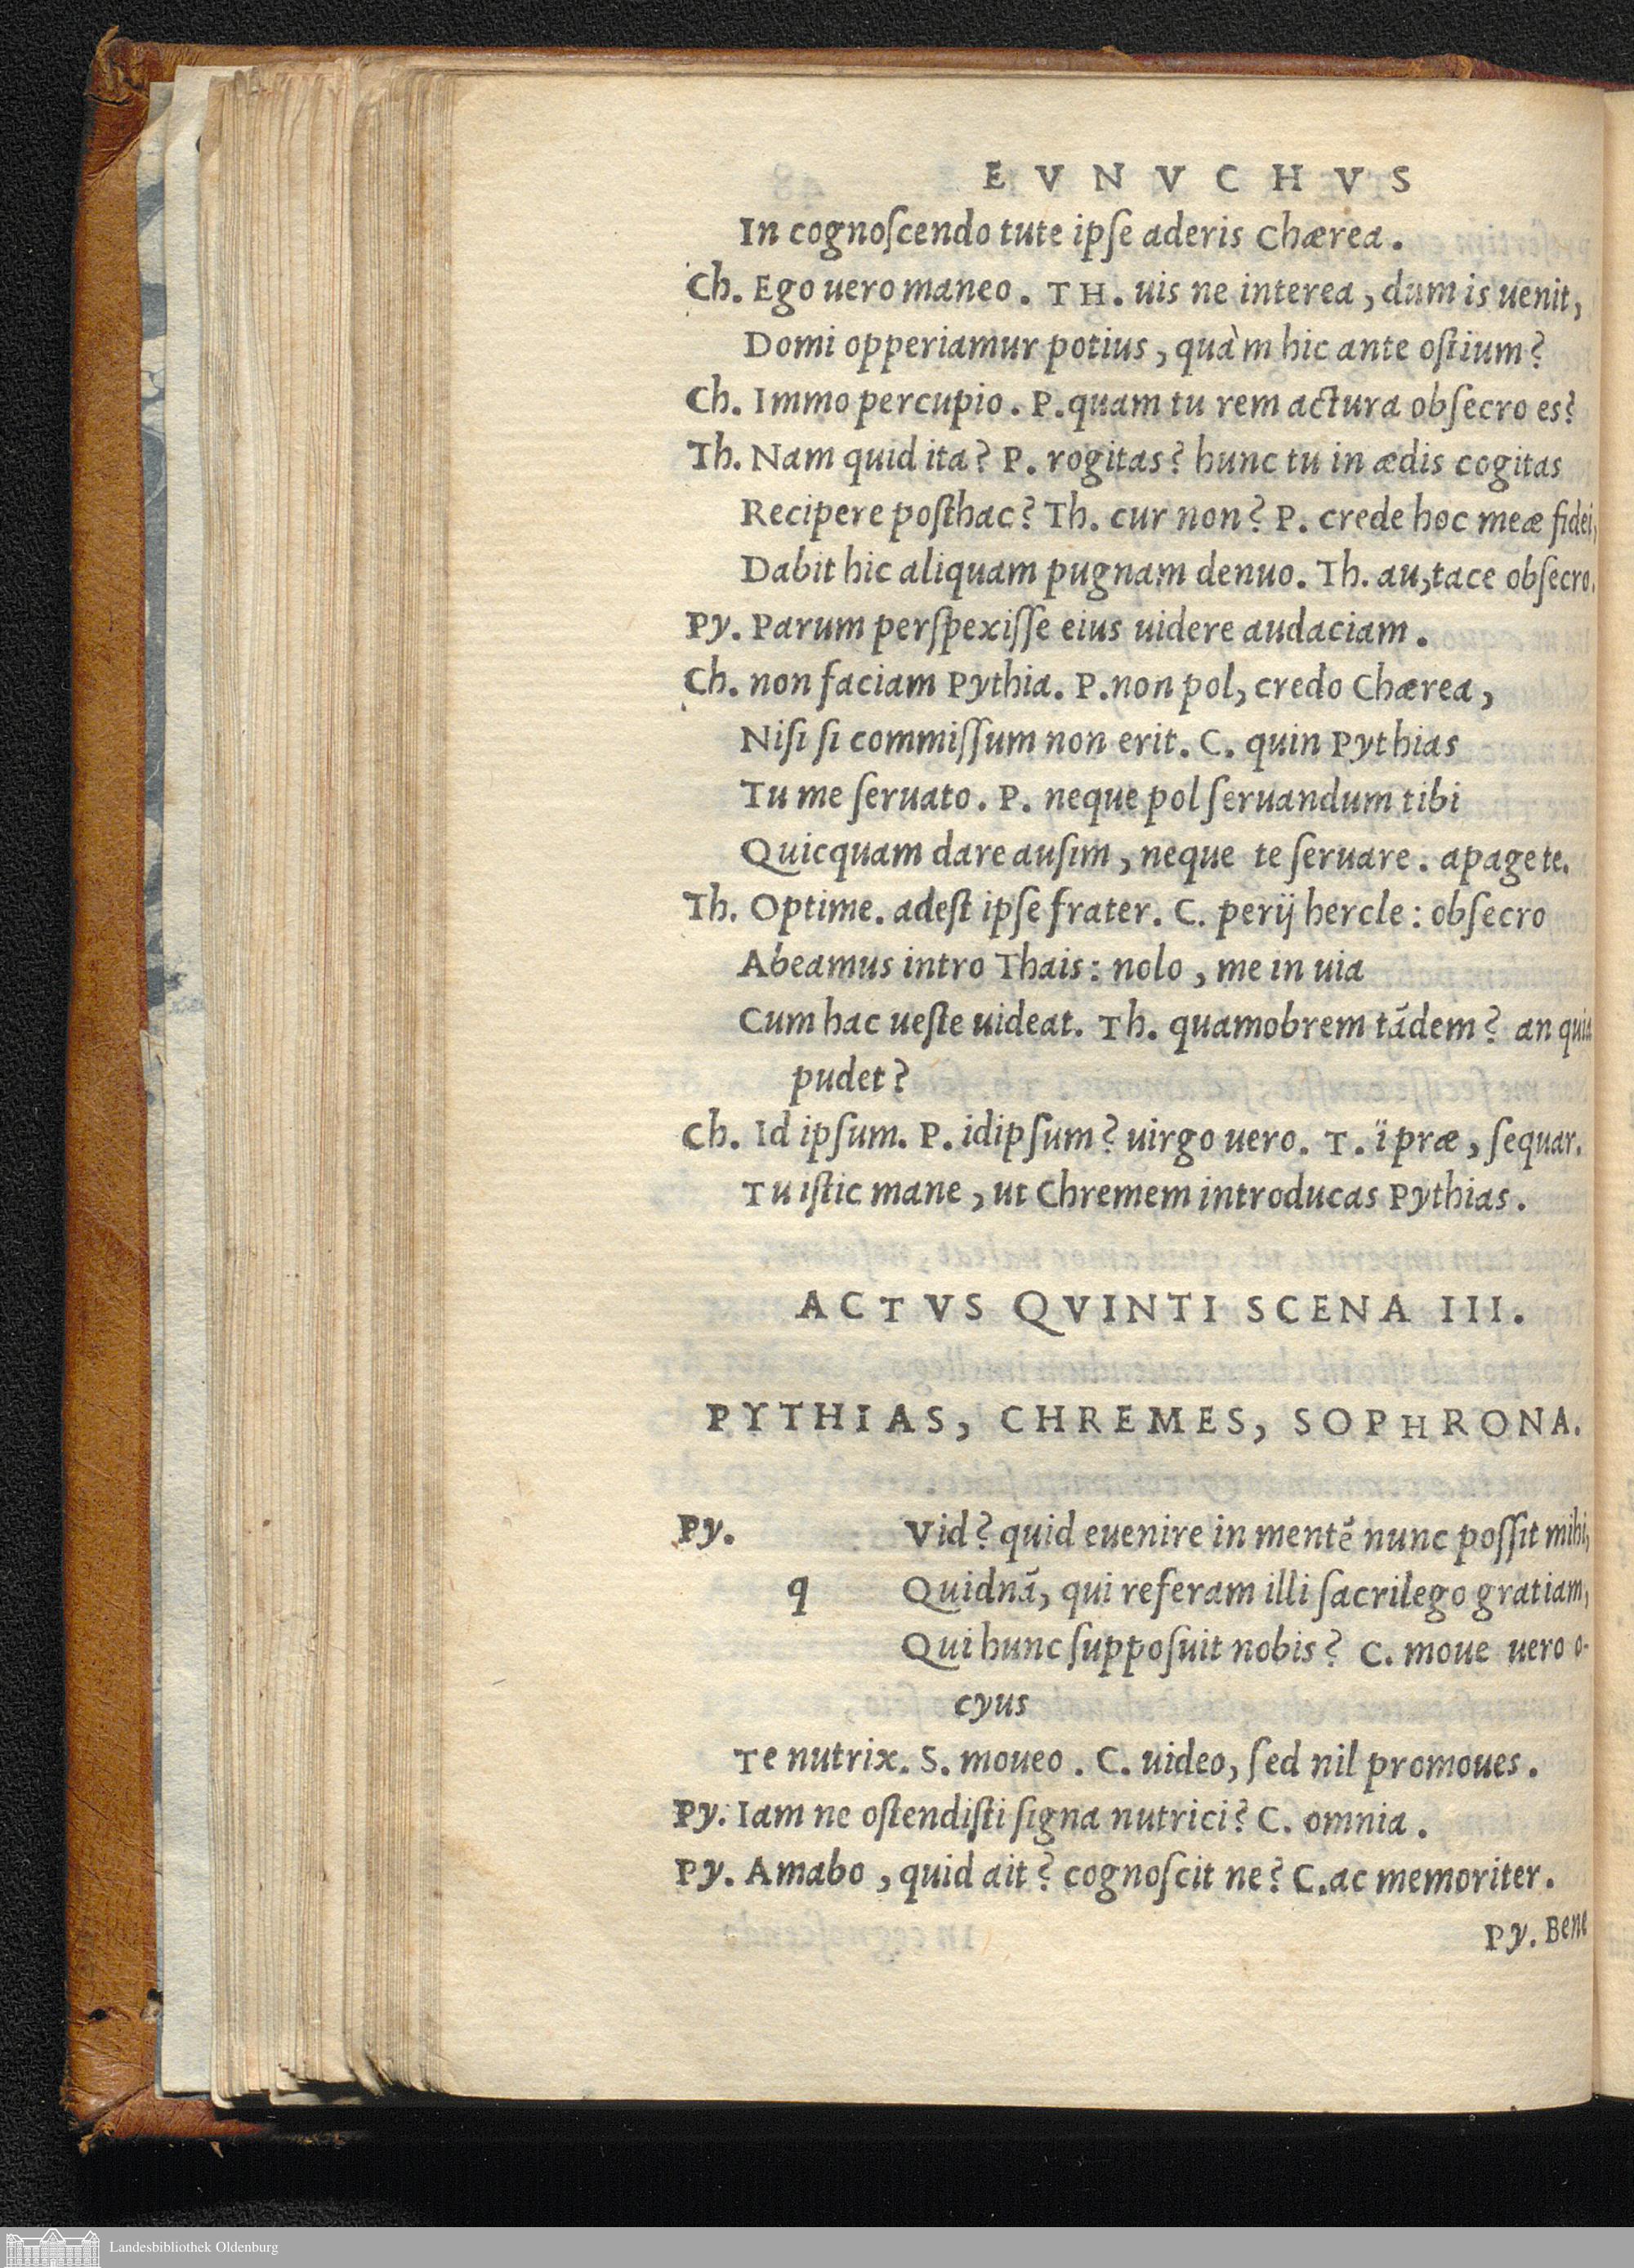 EVNVCHVS
In cognoſcendo tute ipſe aderis Chærea.
Ch. Ego uero maneo. TH. uis ne interea, dum is uenit,
Domi opperiamur potius, quàm hic ante oſtium?
Ch. Immo percupio. P. quam tu rem actura obſecro es?
Th. Nam quid ita? P. rogitas? hunc tu in ædis cogitas
Recipere poſthac? Th. cur non? P. crede hoc meæ fidei,
Dabit hic aliquam pugnam denuo. Th. au, tace obſecro.
Py. Parum perſpexiſſe eius uidere audaciam.
Ch. non faciam Pythia. P. non pol, credo Chærea,
Niſi ſi commiſſum non erit. C. quin Pythias
Tu me ſeruato. P. neque pol ſeruandum tibi
Quicquam dare auſim, neque te ſeruare. apage te.
Th. Optime. adeſt ipſe frater. C. perij hercle: obſecro
Abeamus intro Thais: nolo, me in uia
Cum hac ueſte uideat. Th. quamobrem tādem? an quia
pudet?
Ch. Id ipſum. P. idipſum? uirgo uero. T. ï præ, ſequar.
Tu iſtic mane, ut Chremem introducas Pythias.
ACTVS QVINTI SCENA III.
PYTHIAS, CHREMES, SOPHRONA.
Py. Vid? quid euenire in mentē nunc poſſit mihi,
q Quidnā, qui referam illi ſacrilego gratiam,
Qui hunc ſuppoſuit nobis? C. moue uero o-
cyus
Te nutrix. S. moueo. C. uideo, ſed nil promoues.
Py. Iam ne oſtendiſti ſigna nutrici? C. omnia.
Py. Amabo, quid ait? cognoſcit ne? C. ac memoriter.
Py. Bene
Landesbibliothek Oldenburg